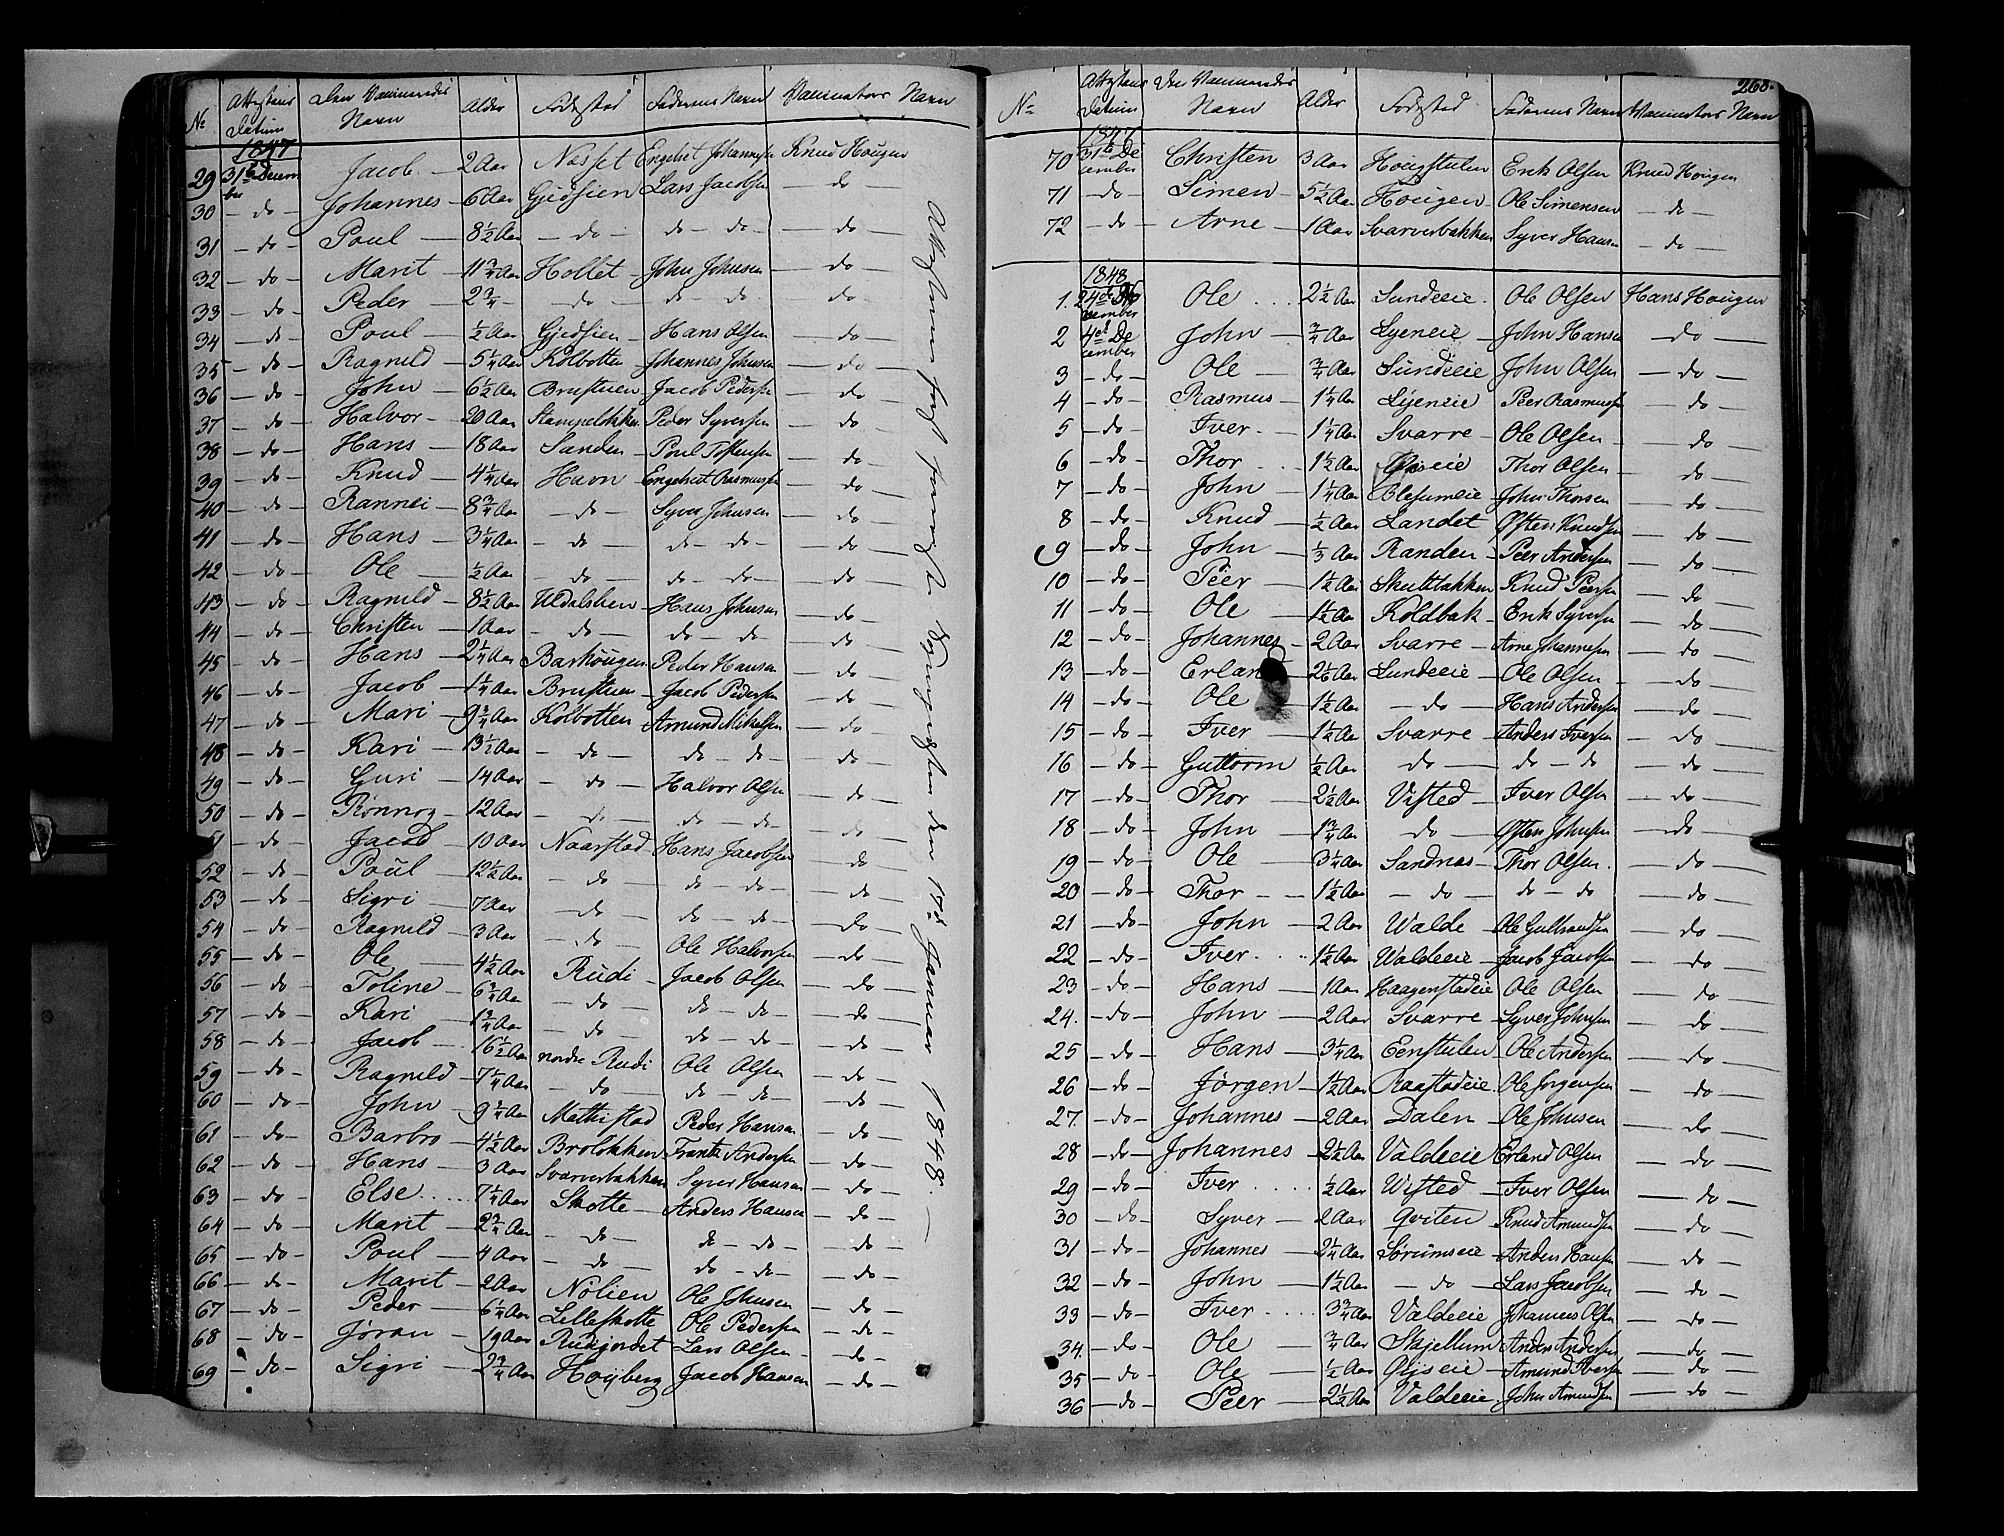 No Attestens Datum Den Vaccineredes Navn Alder Fødested Faderens Navn Vaccinators Navn
1847
29 31te Decem ber Jacob 2 Aar Næsset Engebret Johannesen Knud Hougen
30 - do - Johannes 6 Aar Gjedsien Lars Jacobsen - do
31 - do - Poul 8½ Aar - do - do - do - do
32 - do - Marit 11¾ Aar Hollet John Johnsen - do
33 - do - Peder 2¾ - - do - do - do - do
34 - do - Poul ½ Aar Gjedsien Hans Olsen - do
35 - do - Ragnild 5¼ Aar Kolbotten Johannes Johnsen - do
36 - do - John 6½ Aar Brustuen Jacob Pedersen - do
37 - do - Halvor 20 Aar Stampeløkken Peder Syversen - do
38 - do - Hans 18 Aar Sanden Poul Tostensen - do
39 - do - Knud 4¼ Aar Havn Engebret Rasmussen - do
40 - do - Rannei 8¾ Aar - do - Syver Johnsen - do
41 - do - Hans 3¼ Aar - do - do - do - do
42 - do - Ole ½ Aar - do - do - do - do
43 - do - Ragnild 8½ Aar Uldalslien Hans Johnsen - do
44 - do - Christen 1 Aar - do - do - do - do
45 - do - Hans 2¼ Aar Barhougen Peder Hansen - do
46 - do - Jacob 1¼ Aar Brustuen Jacob Pedersen - do
47 - do - Mari 9¾ Aar Kolbotten Amund Mikelsen - do
48 - do - Kari 13½ Aar - do - do - do - do
49 - do - Guri 14 Aar - do Halvor Olsen - do
50 - do - Rønnog 12 Aar - do - do - do - do
51 - do - Jacob 10 Aar Naarstad Hans Jacobsen - do
52 - do - Poul 12½ Aar - do - do - do - do
53 - do - Sigri 7 Aar - do - do - do - do
54 - do - Ragnild 3 Aar - do - Ole Halvorsen - do
55 - do - Ole 4½ Aar Rudi Jacob Olsen - do
56 - do - Toline 6¾ Aar - do do - do - do
57 - do - Kari 1¾ Aar - do - do - do - do
58 - do - Jacob 16½ Aar nordre Rudi Ole Olsen - do
59 - do - Ragnild 7¼ Aar - do - do - do - do
60 - do - John 9¼ Aar Mathistad Peder Hansen - do
61 - do - Barbro 4½ Aar Broløkken Frants Andersen - do
62 - do - Hans 3 Aar Svarverbakken Syver Hansen - do
63 - do - Else 7¼ Aar Skotte Anders Hansen - do
64 - do - Marit 2¾ Aar - do - do - do - do
65 - do - Poul 4 Aar - do - do - do - do
66 - do - Marit 2 Aar Nølien Ole Johnsen - do
67 - do - Peder 6¼ Aar Lilleskotte Ole Pedersen - do
68 - do - Jøran 19 Aar Rudijordet Lars Olsen - do
69 - do - Sigri 2¾ Aar Høyberg Jacob Hansen - do
1848.
No Attestens Datum Den Vaccineredes Navn Alder Fødested Faderens Navn Vaccinators Navn 268.
1847
70 31te De cember Christen 3 Aar Hougstulen Erik Olsen Knud Hougen
71 - do - Simen 5½ Aar Hougen Ole Simensen - do
72 - do Arne 1 Aar Svarverbakken Syver Hansen - do
1848
1. Ole 2½ Aar Sundeeie Ole Olsen Hans Hougen
2 4de De cember John ¾ Aar Lyeneie John Hansen - do
3 - do - Ole ¾ Aar Sundeeie John Olsen - do
4 - do Rasmus 1¼ Aar Lyeneie Peer Rasmussen - do
5 - do Iver 1¼ Aar Svarre Ole Olsen - do
6 - do - Thor 1½ Aar Thor Olsen - do
7 - do John 1¼ Aar Blesumeie John Thorsen - do
8 - do Knud ½ Aar Landet Østen Knudsen - do
9 - do John ⅓ Aar Randen Peer Andersen - do
10 - do Peer 1½ Aar Skutlbakken Knud Peersen - do
11 - do Ole 1½ Aar Koldbak Erik Syversen - do
12 - do Johannes 2 Aar Svarre Arne Johannesen - do
13 - do Erland 2½ Aar Sundeeie Ole Olsen - do
14 - do Ole 1½ Aar - do Hans Andersen - do
15 - do Iver 1½ Aar Svarre Anders Iversen - do
16 - do Guttorm ½ Aar do do - do do
17 - do Thor 2½ Aar Visted Iver Olsen - do
18 - do John 1¾ Aar do Østen Johnsen - do
19 - do Ole 3¼ Aar Sandnæs Thor Olsen - do
20 - do Thor 1½ Aar - do do - do do
21 - do John 2 Aar Walde Ole Gulbrandsen - do
22 - do Iver 1½ Aar Waldeeie Jacob Jacobsen - do
23 - do Hans 1 Aar Haagenstadeie Ole Olsen - do
24. - do John 2 Aar Svarre Syver Johnsen - do
25 - do Hans 3¼ Aar Eenstulen Ole Andersen - do
26 - do Jørgen 1½ Aar Raastadeie Ole Jørgensen - do
27. - do Johannes 2 Aar Dalen Ole Johnsen - do
28 - do Johannes 2½ Aar Valdeeie Erland Olsen - do
29 - do Iver ½ Aar Wisted Iver Olsen - do
30 - do Syver 2 Aar Qviten Knud Amundsen - do
31 - do Johannes 2¼ Aar Sørumseie Anders Hansen - do
32 - do John 1½ Aar - do Lars Jacobsen - do
33 - do Iver 3¾ Aar Valdeeie Johannes Olsen - do
34. - do Ole ¾ Aar Skjellum Anders Andersen - do
35 - do Ole ½ Aar Amund Iversen - do
36 - do Peer 2½ Aar Valdeeie John Amundsen - do